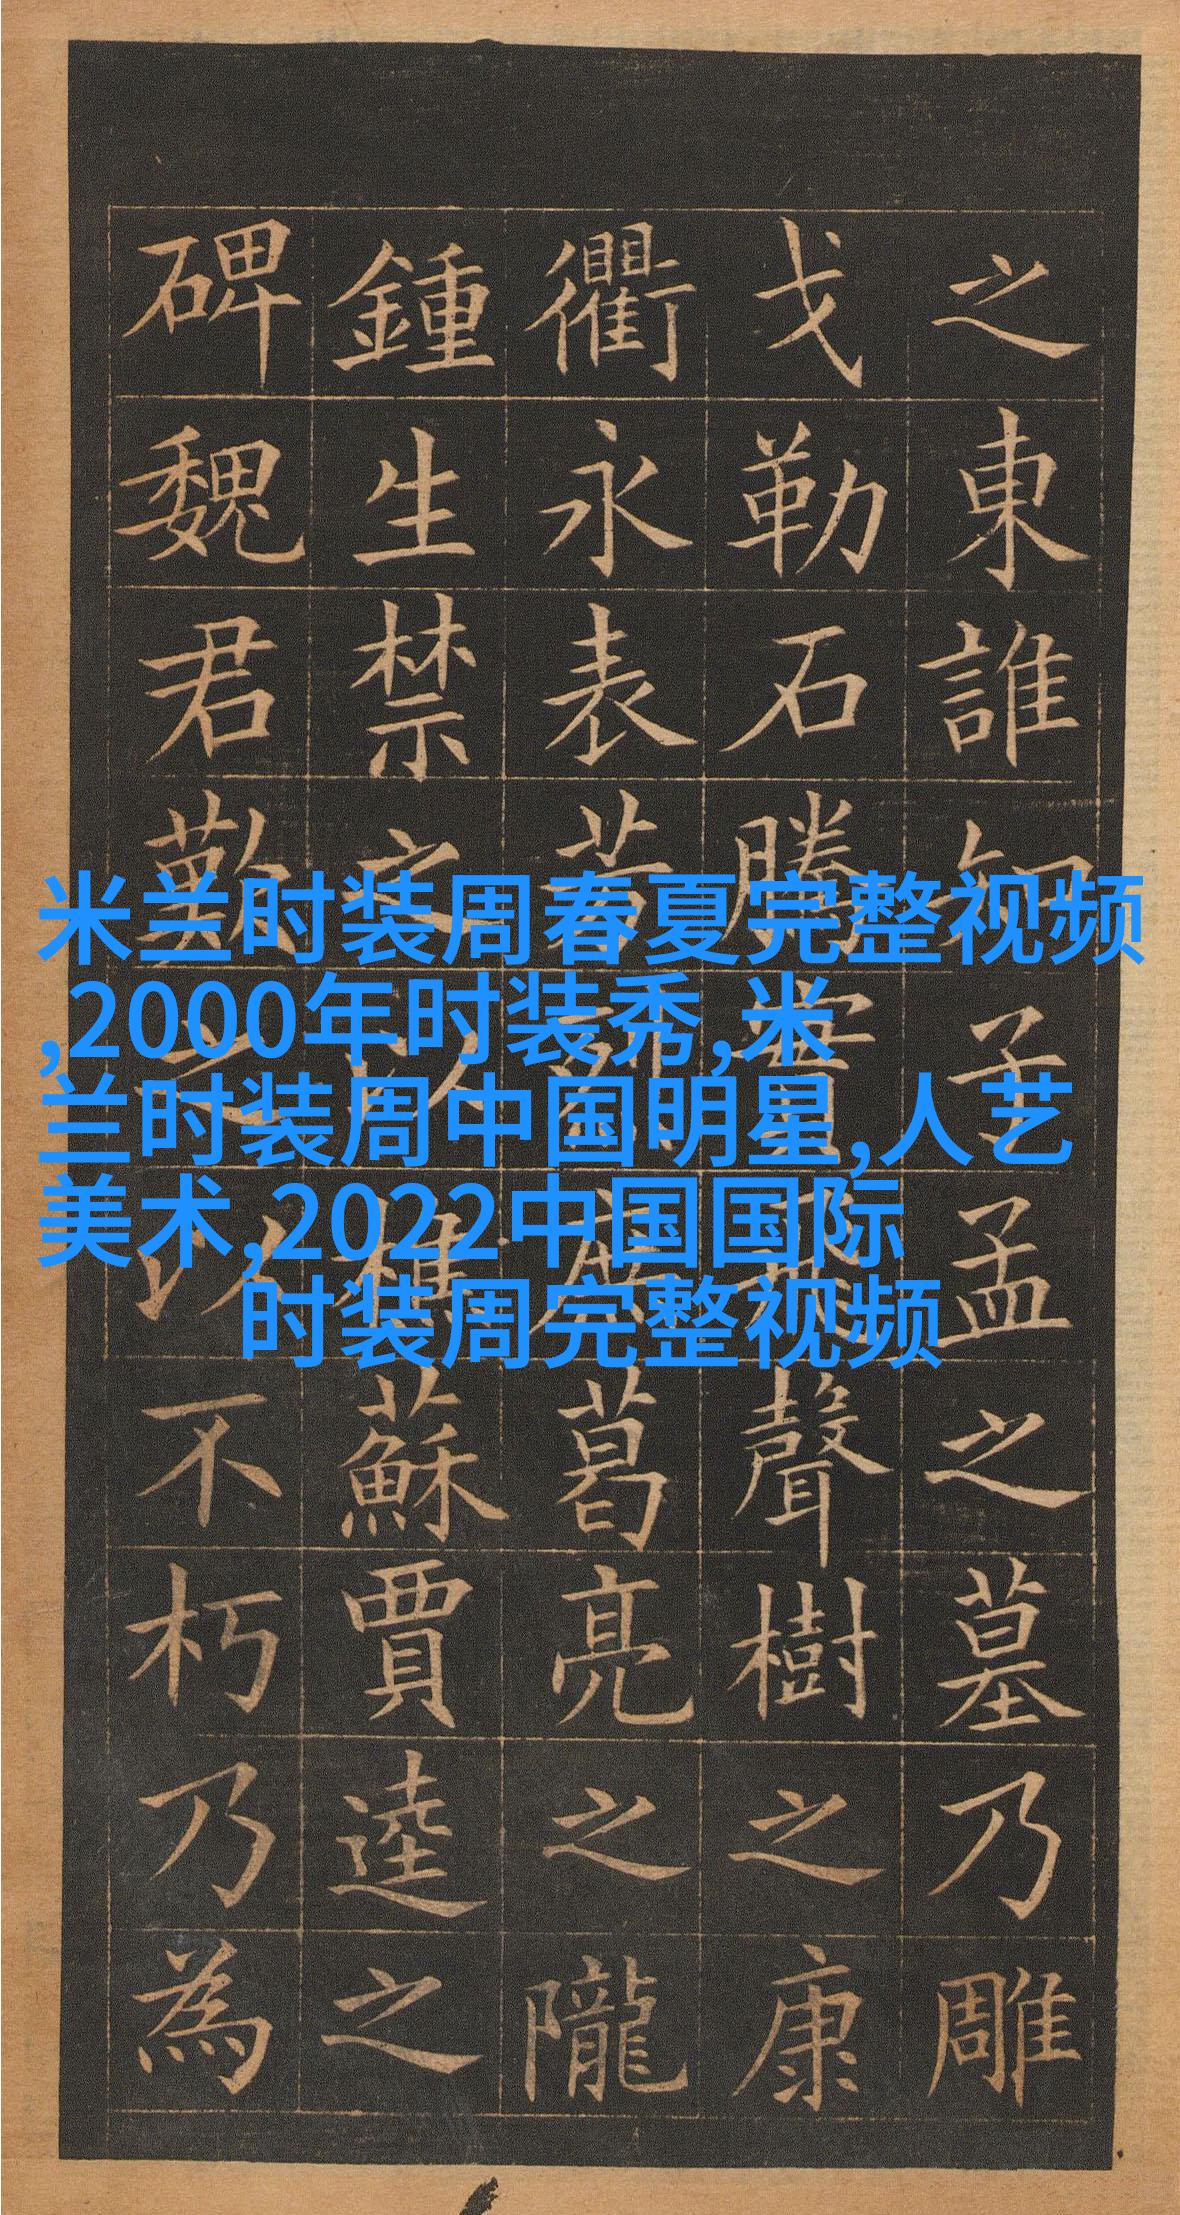 之東誰知子孟之墓乃雕
戈勒石騰實飛聲樹之康
衢永表若葛亮之隴
鍾生禁之以樵蘇賈逵之
碑魏君歎之以不朽乃為
米兰时装周春夏完整视频
,2000年时装秀,米
兰时装周中国明星,人艺
美术,2022中国国际
时装周完整视频